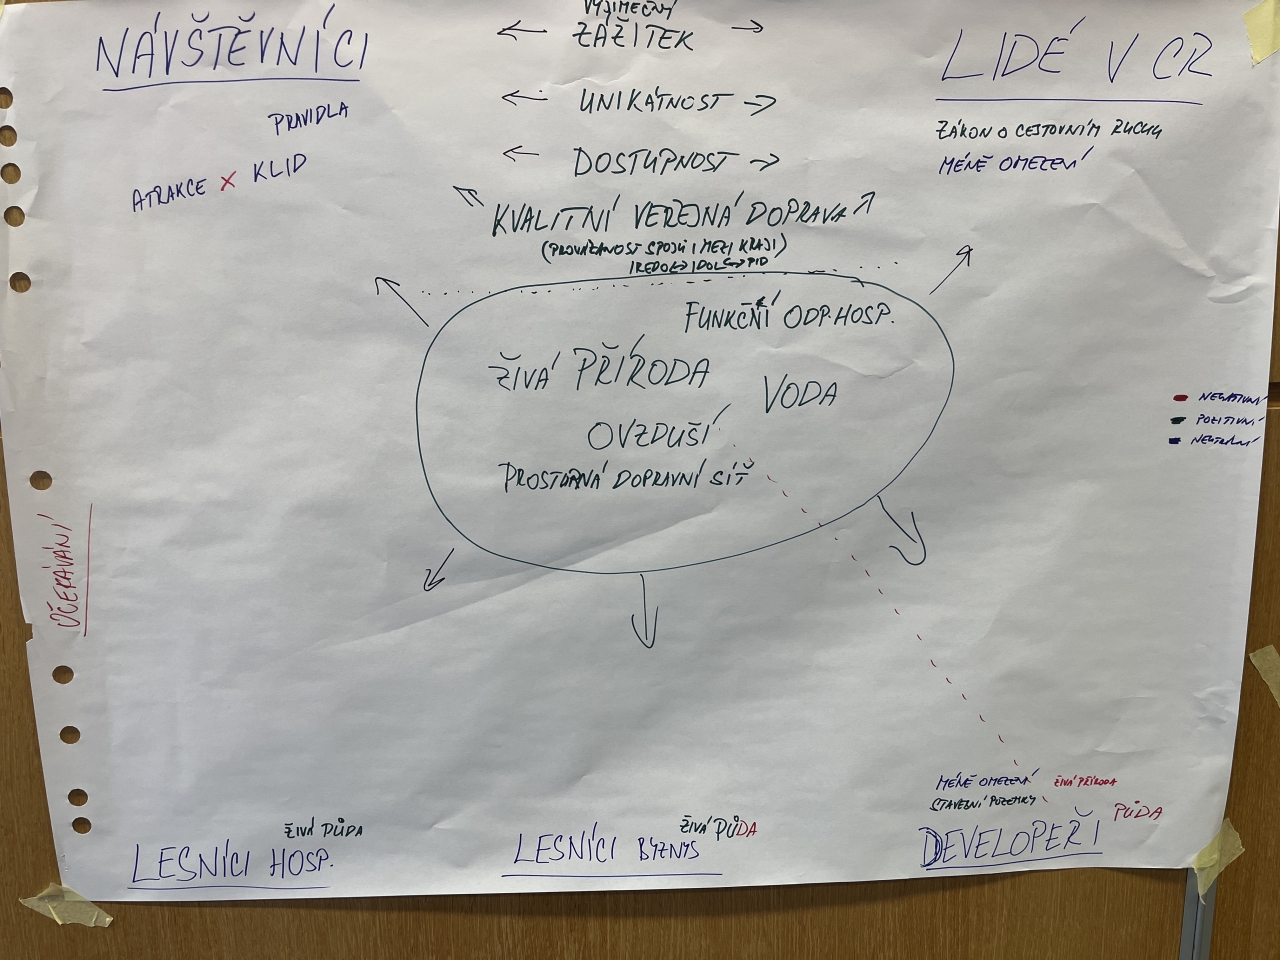 NÁVŠTĚVNÍCI
PRAVIDLA
ATRAKCE X KLID
VÝJIMEČNÝ
ZÁŽITEK
UNIKÁTNOST
DOSTUPNOST
KVALITNÍ VEŘEJNÁ DOPRAVA
(PROVÁZANOST SPOJŮ I MEZI KRAJI)
IREDO ↔ IDOL ↔ PID
LIDÉ V CR
ZÁKON O CESTOVNÍM RUCHU
MÉNĚ OMEZENÍ
FUNKČNÍ ODP. HOSP.
ŽIVÁ PŘÍRODA
VODA
OVZDUŠÍ
PROSTORNÁ DOPRAVNÍ SÍŤ
NEGATIVNÍ
POZITIVNÍ
NEUTRÁLNÍ
OČEKÁVÁNÍ
ŽIVÁ PŮDA
LESNÍCI HOSP.
ŽIVÁ PŮDA
LESNÍCI BYZNYS
MÉNĚ OMEZENÍ ŽIVÁ PŘÍRODA
STAVEBNÍ POZEMKY
PŮDA
DEVELOPEŘI